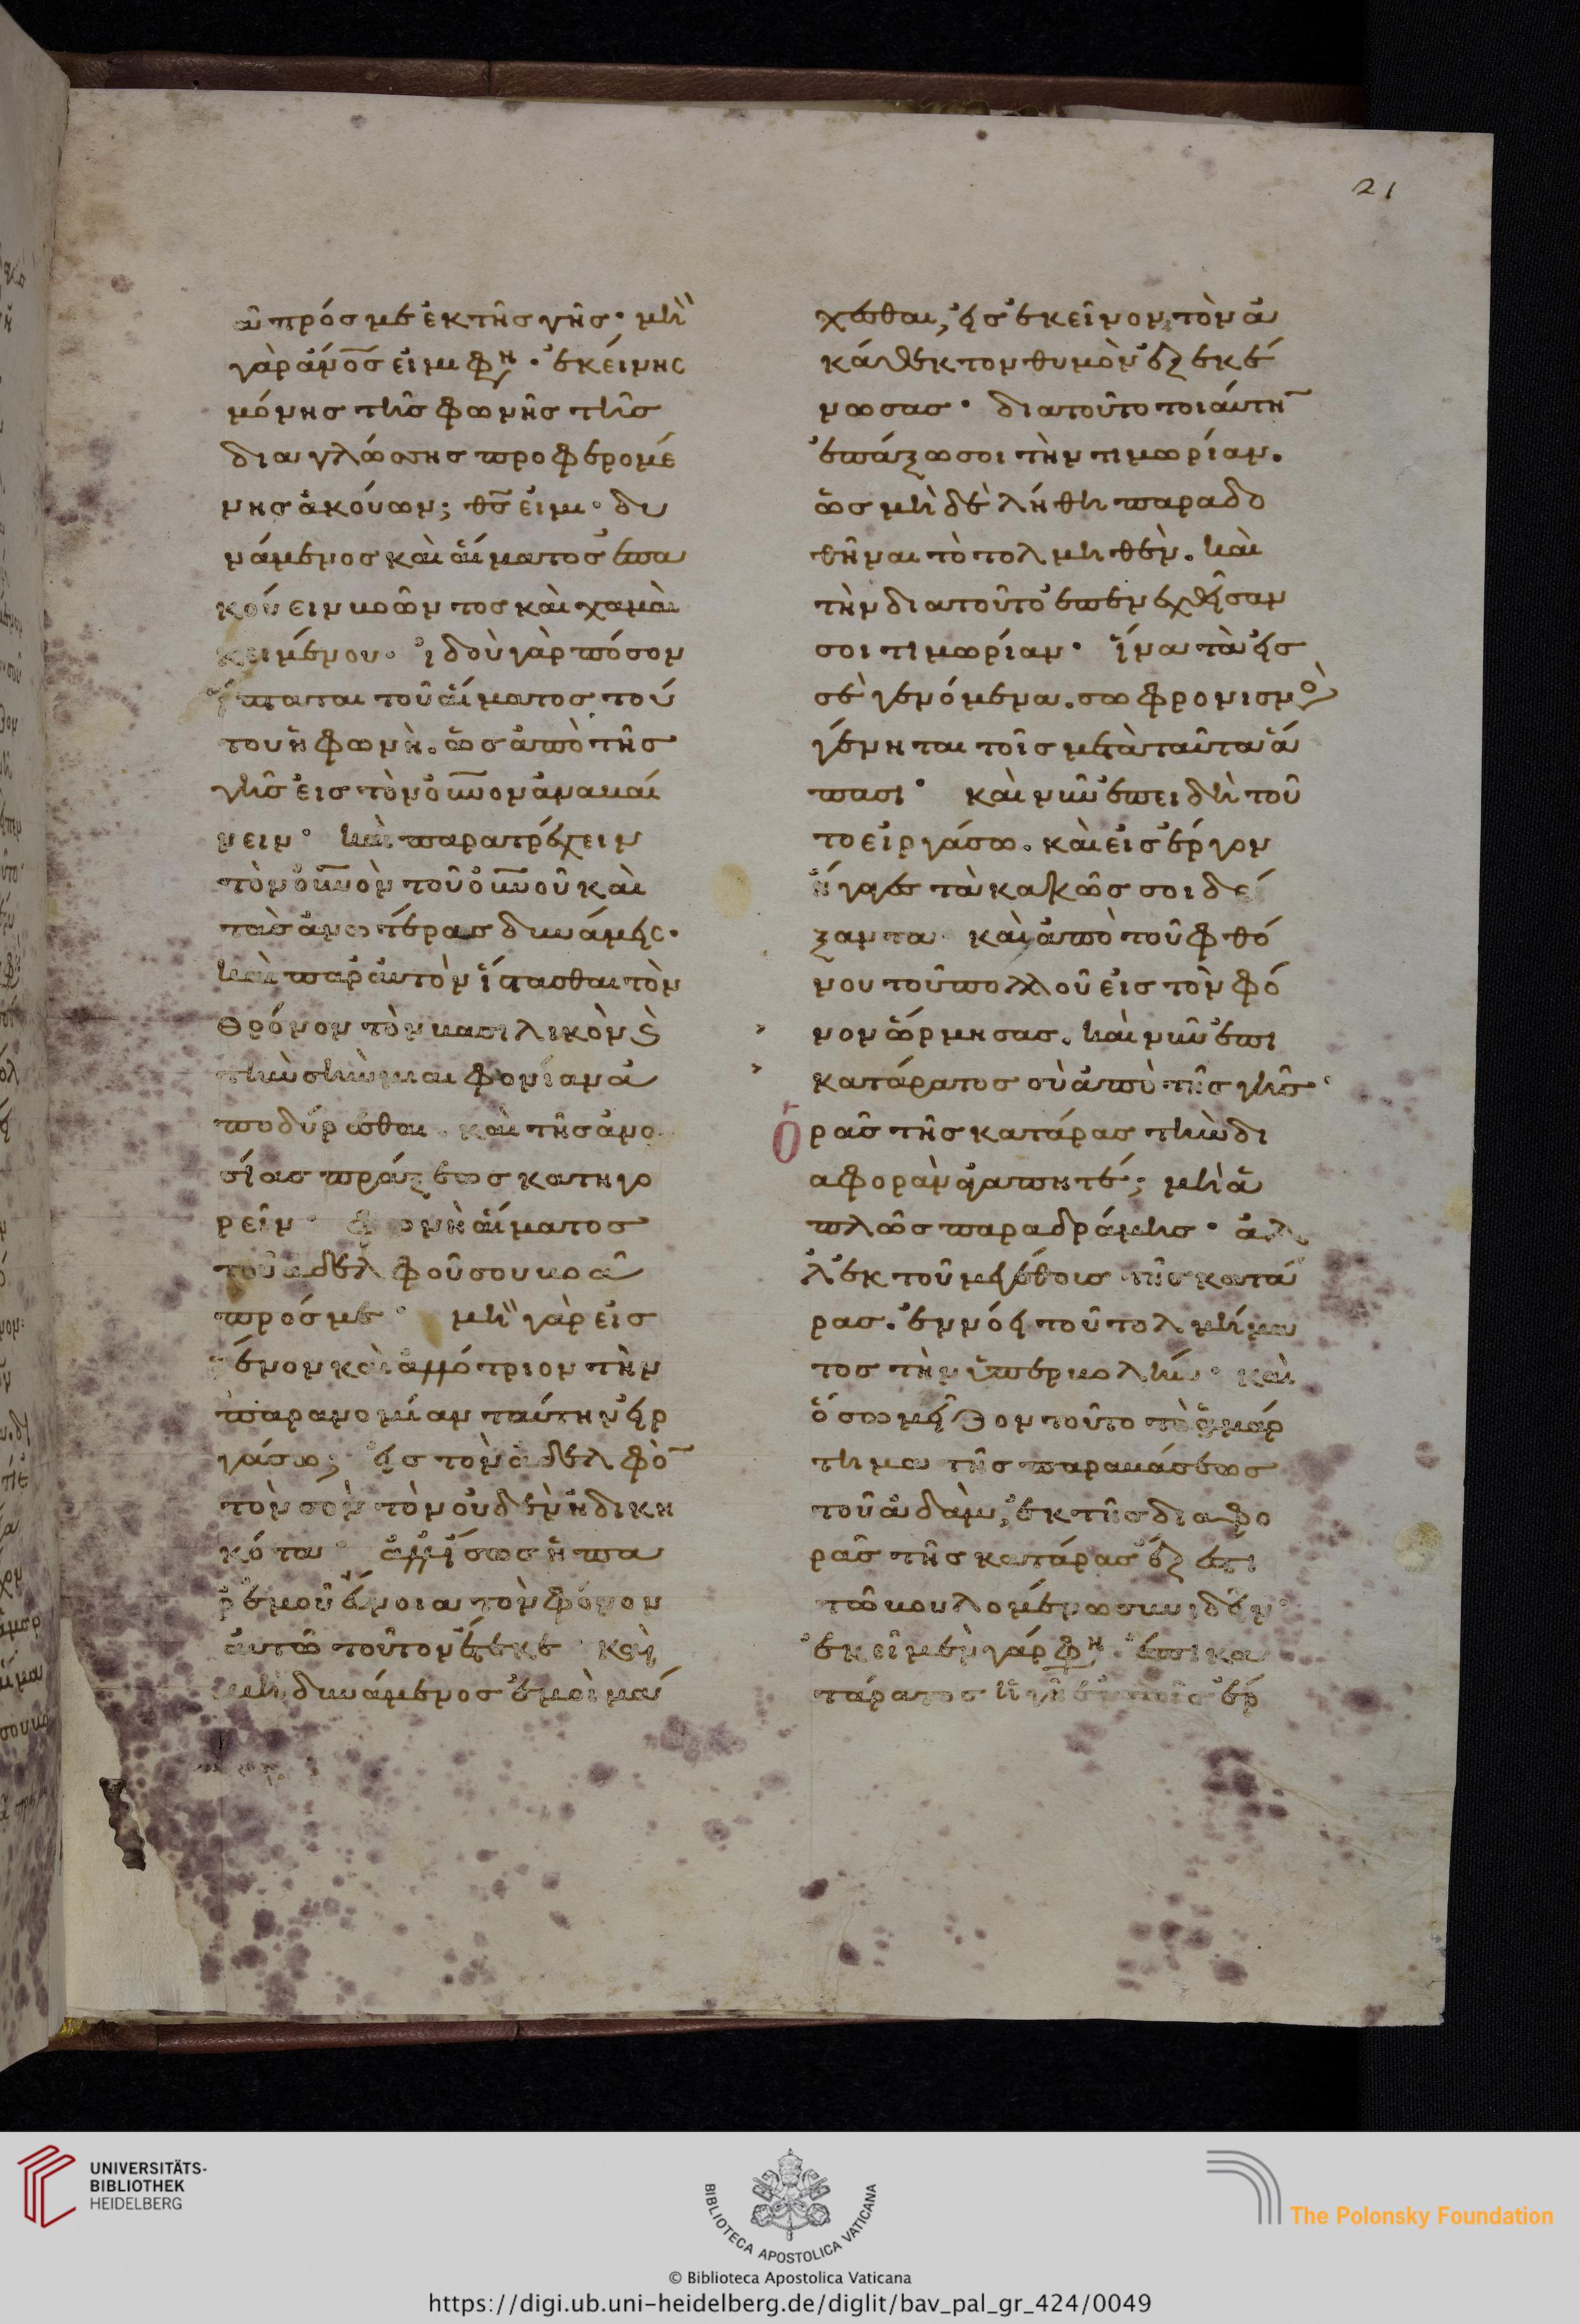 21
ᾷ πρός με ἐκ τῆς γῆς· μὴ
γὰρ ἄνος εἰμι φη· ἐκείνης
μόνης τῆς φωνῆς τῆς
δια γλώσσης προφερομέ
νης ἀκούων; θς εἰμι· δυ
νάμενος καὶ αἵματος ἐπα
κούειν βοῶντος καὶ χαμαὶ
κειμένου· ἰδοὺ γὰρ πόσον
ἵπταται τοῦ αἵματος τού
του ἡ φωνὴ. ὡς ἀπὸ τῆς
γῆς εἰς τὸν οὐνον ἀναβαί
νειν· καὶ παρατρέχειν
τὸν οὐνὸν τοῦ οὐνοῦ καὶ
τὰς ἀνωτέρας δυνάμεις·
καὶ παρ αὐτὸν ἵστασθαι τὸν
θρόνον τὸν βασιλικὸν καὶ
τὴν σὴν μιαιφονίαν ἀ
ποδύρεσθαι. καὶ τῆς ἀνο
σίας πράξεως κατηγο
ρεῖν· φωνὴ αἵματος
τοῦ ἀδελφοῦ σου βοᾷ
πρός με· μὴ γὰρ εἰς
ξένον καὶ ἀλλότριον τὴν
παρανομίαν ταύτην εἰρ
γάσω; εἰς τὸν ἀδελφὸ
τὸν σὸν τὸν οὐδὲν ἠδικη
κότα· ἀλλ ἴσως ἡ πα
ρ ἐμοῦ εὔνοια τὸν φόνον
αὐτῶ τοῦτον ἔτεκε· καὶ
μὴ δυνάμενος ἐμοὶ μά
χεσθαι, εἰς ἐκεῖνον τὸν ἀ
κάθεκτον θυμὸν ἐξεκέ
νωσας· διατοῦτο τοιάυτη
ἐπάξω σοι τὴν τιμωρίαν.
ὡς μὴ δὲ λήθη παραδο
θῆναι τὸ τολμηθὲν. καὶ
τὴν διατοῦτο ἐπενεχθεῖσαν
σοι τιμωρίαν· ἵνα τὰ εἰς
σὲ γενόμενα. σωφρονισμὸ
γένηται τοῖς μετὰ ταῦτα ἅ
πασι· καὶ νῦν ἐπειδὴ τοῦ
το εἰργάσω. καὶ εἰς ἔργον
ἤγαγες τὰ κακῶς σοι δό
ξαντα καὶ ἀπὸ τοῦ φθό
νου τοῦ πολλοῦ εἰς τὸν φό
νον ὥρμησας. καὶ νῦν ἐπι
κατάρατος σὺ ἀπὸ τῆς γῆς·
Ὁρᾶς τῆς κατάρας τὴν δι
αφορὰν ἀγαπητέ; μὴ ἁ
πλῶς παραδράμης· ἀλ
λ ἐκ τοῦ μεγέθους τῆς κατά
ρας. ἐννόει τοῦ τολμήμα
τος τὴν ὑπερβολήν· καὶ
ὅσω μεῖζον τοῦτο τὸ ἁμάρ
τημα τῆς παραβάσεως
τοῦ ἀδὰμ, ἐκ τῆς διαφο
ρᾶς τῆς κατάρας ἔξεστι
τῶ βουλομένω συνιδεῖν·
ἐκεῖ μὲν γάρ φη. ἐπικα
τάρατος ἡ γῆ ἐν τοῖς ἔρ
UNIVERSITÄTS-
BIBLIOTHEK
HEIDELBERG
BIBLIOTECA APOSTOLICA VATICANA
The Polonsky Foundation
© Biblioteca Apostolica Vaticana
https://digi.ub.uni-heidelberg.de/diglit/bav_pal_gr_424/0049